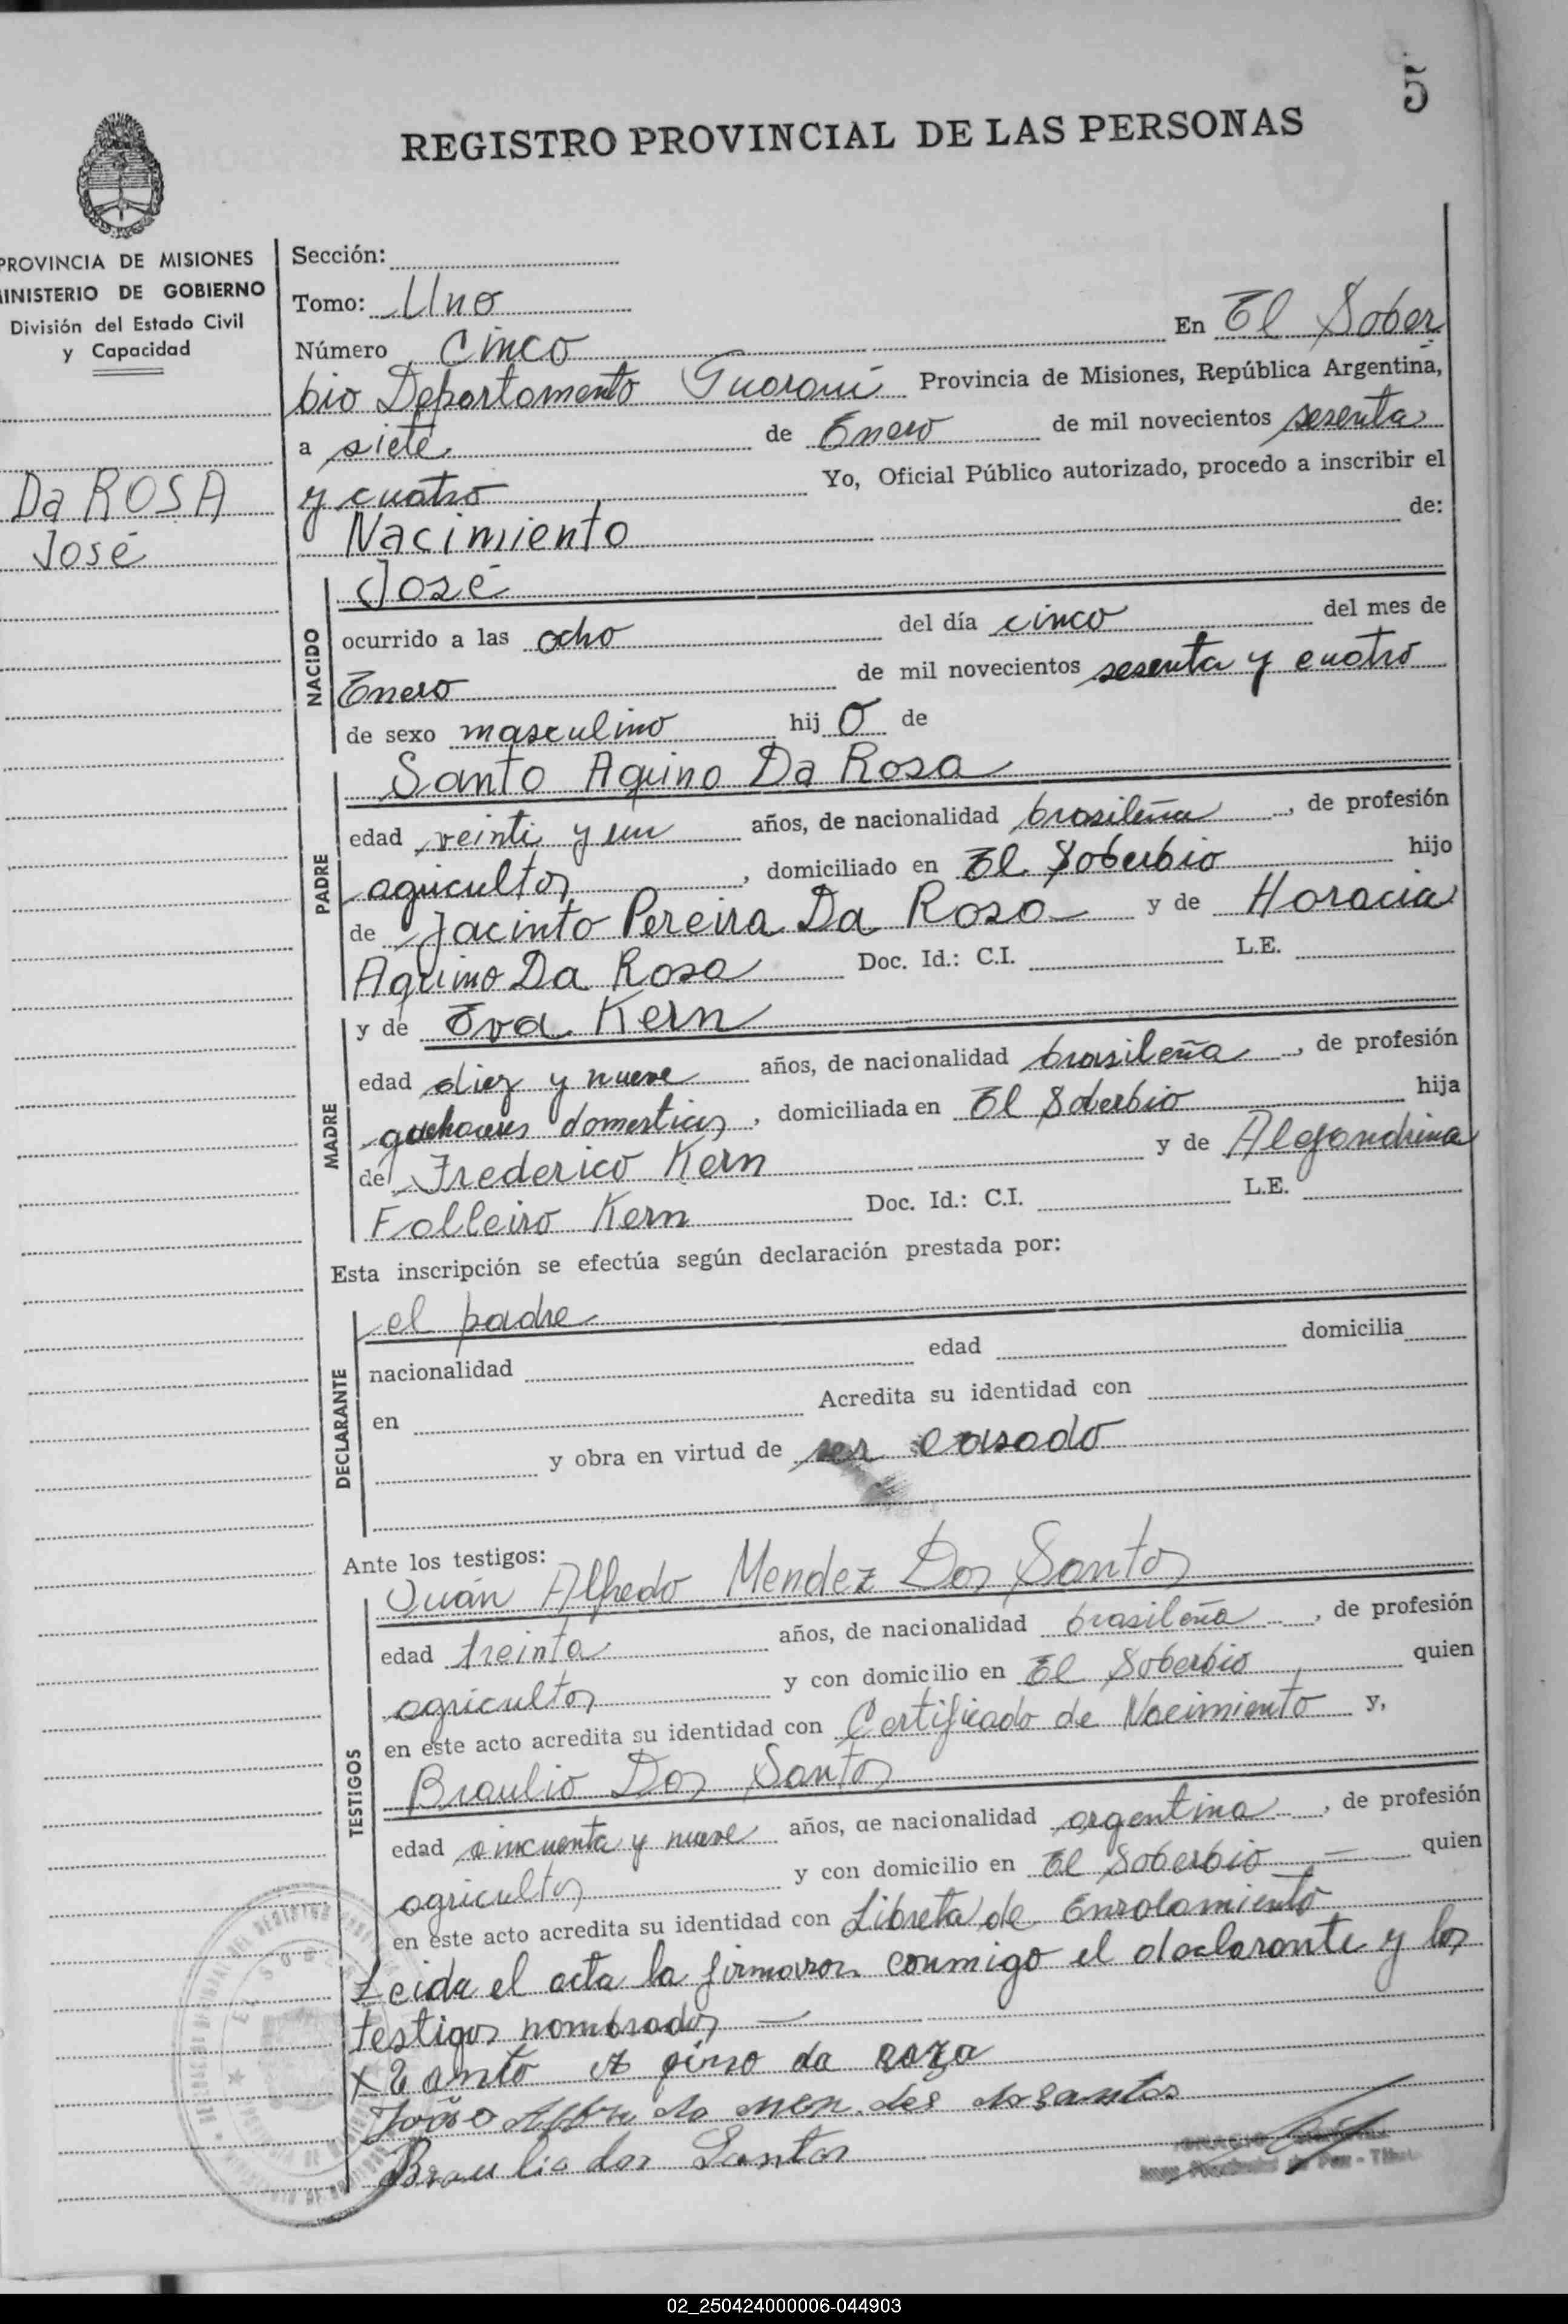 5
REGISTRO PROVINCIAL DE LAS PERSONAS
PROVINCIA DE MISIONES
MINISTERIO DE GOBIERNO
División del Estado Civil
y Capacidad
Da ROSA
José
Sección:
Tomo: Uno
Número Cinco En El Sober
bio Departamento Guaraní Provincia de Misiones, República Argentina,
a siete de Enero de mil novecientos sesenta
y cuatro Yo, Oficial Público autorizado, procedo a inscribir el
Nacimiento de:
NACIDO
José
ocurrido a las ocho del día cinco del mes de
Enero de mil novecientos sesenta y cuatro
de sexo masculino hij o de
PADRE
Santo Aquino Da Rosa
edad veinti y un años, de nacionalidad brasileña, de profesión
agricultor, domiciliado en El Soberbio hijo
de Jacinto Pereira Da Rosa y de Horacia
Aquino Da Rosa Doc. Id.: C.I. L.E.
MADRE
y de Eva Kern
edad diez y nueve años, de nacionalidad brasileña, de profesión
domesticos, domiciliada en El Soberbio hija
de Frederico Kern y de Alejandrina
Folleiro Kern Doc. Id.: C.I. L.E.
Esta inscripción se efectúa según declaración prestada por:
DECLARANTE
el padre
nacionalidad edad domicilia
en Acredita su identidad con
y obra en virtud de ser casado
Ante los testigos:
TESTIGOS
Juán Alfredo Mendez Dos Santos
edad treinta años, de nacionalidad brasileña, de profesión
agricultor y con domicilio en El Soberbio quien
en este acto acredita su identidad con Certificado de Nacimiento y,
Braulio Dos Santos
edad cincuenta y nueve años, de nacionalidad argentina, de profesión
agricultor y con domicilio en El Soberbio — quien
en este acto acredita su identidad con Libreta de Enrolamiento
Leida el acta la firmaron conmigo el declarante y los
testigos nombrados —
x Santo a quino da roza
men des dos santos
Braulio dos Santos
02_250424000006-044903